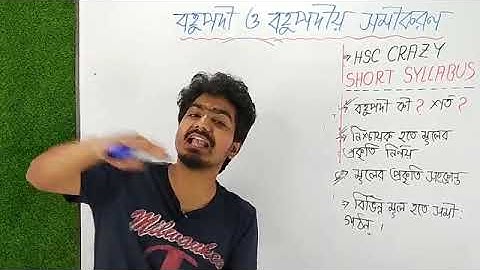 বহুপদী ও বহুপদীয় সমীকরণ
→ HSC CRAZY
SHORT SYLLABUS
→ বহুপদী কী ? শর্ত ?
→ নিশ্চায়ক হতে মূলের
প্রকৃতি নির্ণয়
→ মূলের প্রকৃতি সংক্রান্ত
→ বিভিন্ন মূল হতে সমী:
গঠন।
Milwaukee